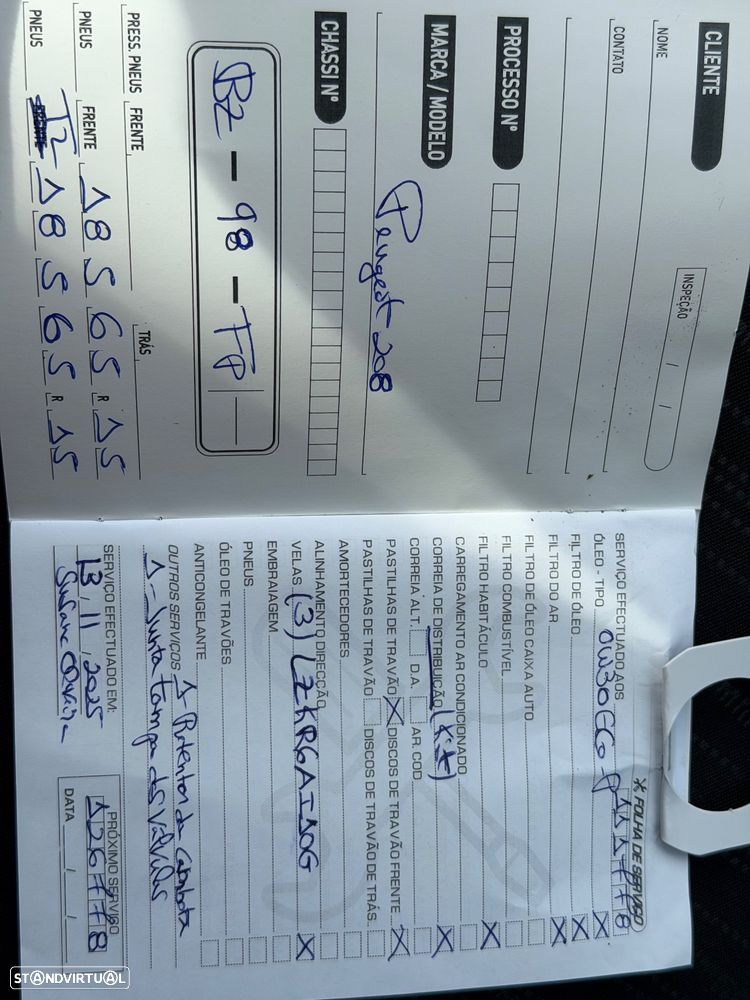 CLIENTE
INSPEÇÃO / /
NOME
CONTATO
PROCESSO Nº
MARCA / MODELO
Peugeot 208
CHASSI Nº
BZ - 98 - FP
PRESS. PNEUS FRENTE TRÁS
PNEUS FRENTE 185 65 R 15
PNEUS T2 185 65 R 15
FOLHA DE SERVIÇO
SERVIÇO EFECTUADO AOS 111778
ÓLEO - TIPO 0W30 ECO P X
FILTRO DE ÓLEO X
FILTRO DO AR X
FILTRO DE ÓLEO CAIXA AUTO
FILTRO COMBUSTÍVEL
FILTRO HABITÁCULO X
CARREGAMENTO AR CONDICIONADO
CORREIA DE DISTRIBUIÇÃO (Kit) X
CORREIA ALT. D.A. AR.COD
PASTILHAS DE TRAVÃO X DISCOS DE TRAVÃO FRENTE X
PASTILHAS DE TRAVÃO DISCOS DE TRAVÃO DE TRÁS
AMORTECEDORES
ALINHAMENTO DIRECÇÃO
VELAS (3) (ZKR6A I10G X
EMBRAIAGEM
PNEUS
ÓLEO DE TRAVÕES
ANTICONGELANTE
OUTROS SERVIÇOS 1 Retentor da Cambota
1 - Junta Tampa das Válvulas
SERVIÇO EFECTUADO EM:
13 / 11 / 2025
PRÓXIMO SERVIÇO
126778
DATA / /
STANDVIRTUAL